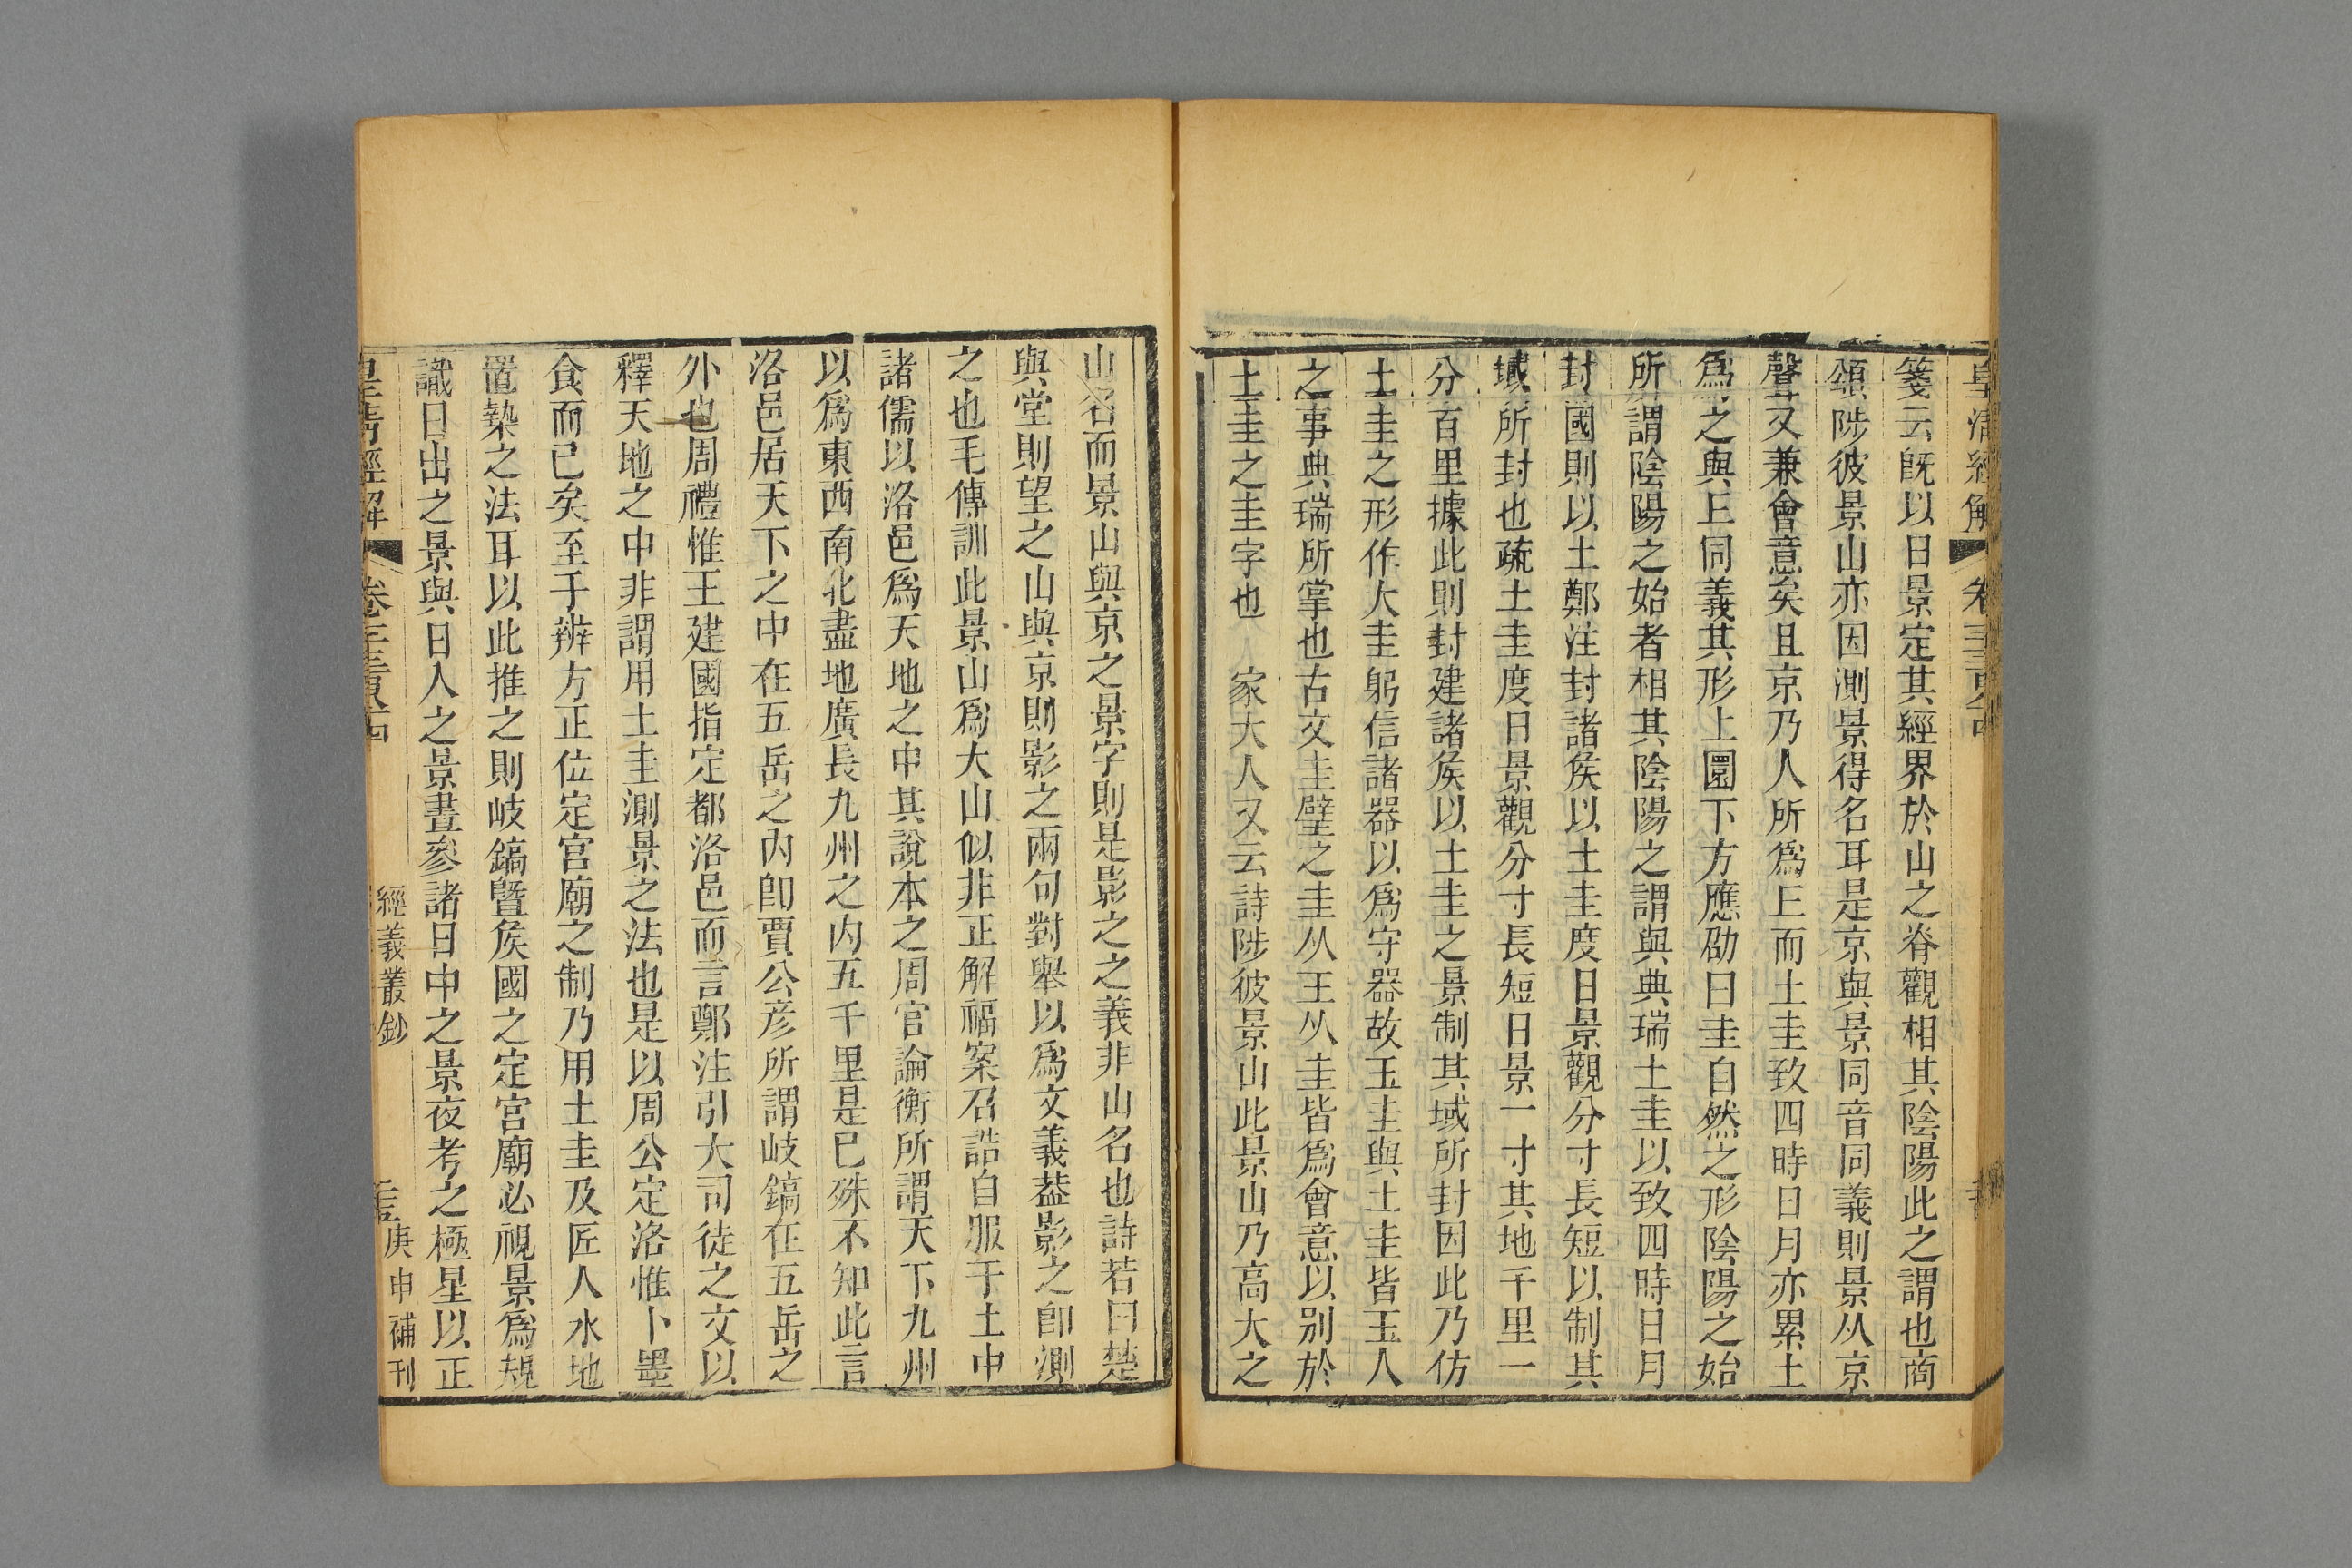 箋云既以日景定其經界於山之脊觀相其陰陽此之謂也商
頌陟彼景山亦因測景得名耳是京與景同音同義則景从京
聲又兼會意矣且京乃人所爲丘而土圭致四時日月亦累土
爲之與丘同義其形上圜下方應劭曰圭自然之形陰陽之始
所謂陰陽之始者相其陰陽之謂與典瑞土圭以致四時日月
封國則以土鄭注封諸矦以土圭度日景觀分寸長短以制其
域所封也疏土圭度日景觀分寸長短日景一寸其地千里一
分百里據此則封建諸矦以土圭之景制其域所封因此乃仿
土圭之形作大圭躬信諸器以爲守器故玉圭與土圭皆玉人
之事典瑞所掌也古文圭璧之圭从王从圭皆爲會意以別於
土圭之圭字也 家大人又云詩陟彼景山此景山乃高大之
山名而景山與京之景字則是影之之義非山名也詩若曰楚
與堂則望之山與京則影之兩句對舉以爲文義葢影之卽測
之也毛傳訓此景山爲大山似非正解福案召誥自服于土中
諸儒以洛邑爲天地之中其說本之周官論衡所謂天下九州
以爲東西南北盡地廣長九州之內五千里是已殊不知此言
洛邑居天下之中在五岳之內卽賈公彦所謂岐鎬在五岳之
外也周禮惟王建國指定都洛邑而言鄭注引大司徒之文以
釋天地之中非謂用土圭測景之法也是以周公定洛惟卜墨
食而已矣至于辨方正位定宮廟之制乃用土圭及匠人水地
置槷之法耳以此推之則岐鎬曁矦國之定宮廟必視景爲規
識日出之景與日入之景晝參諸日中之景夜考之極星以正
皇淸經解 經義叢鈔 庚申補刊